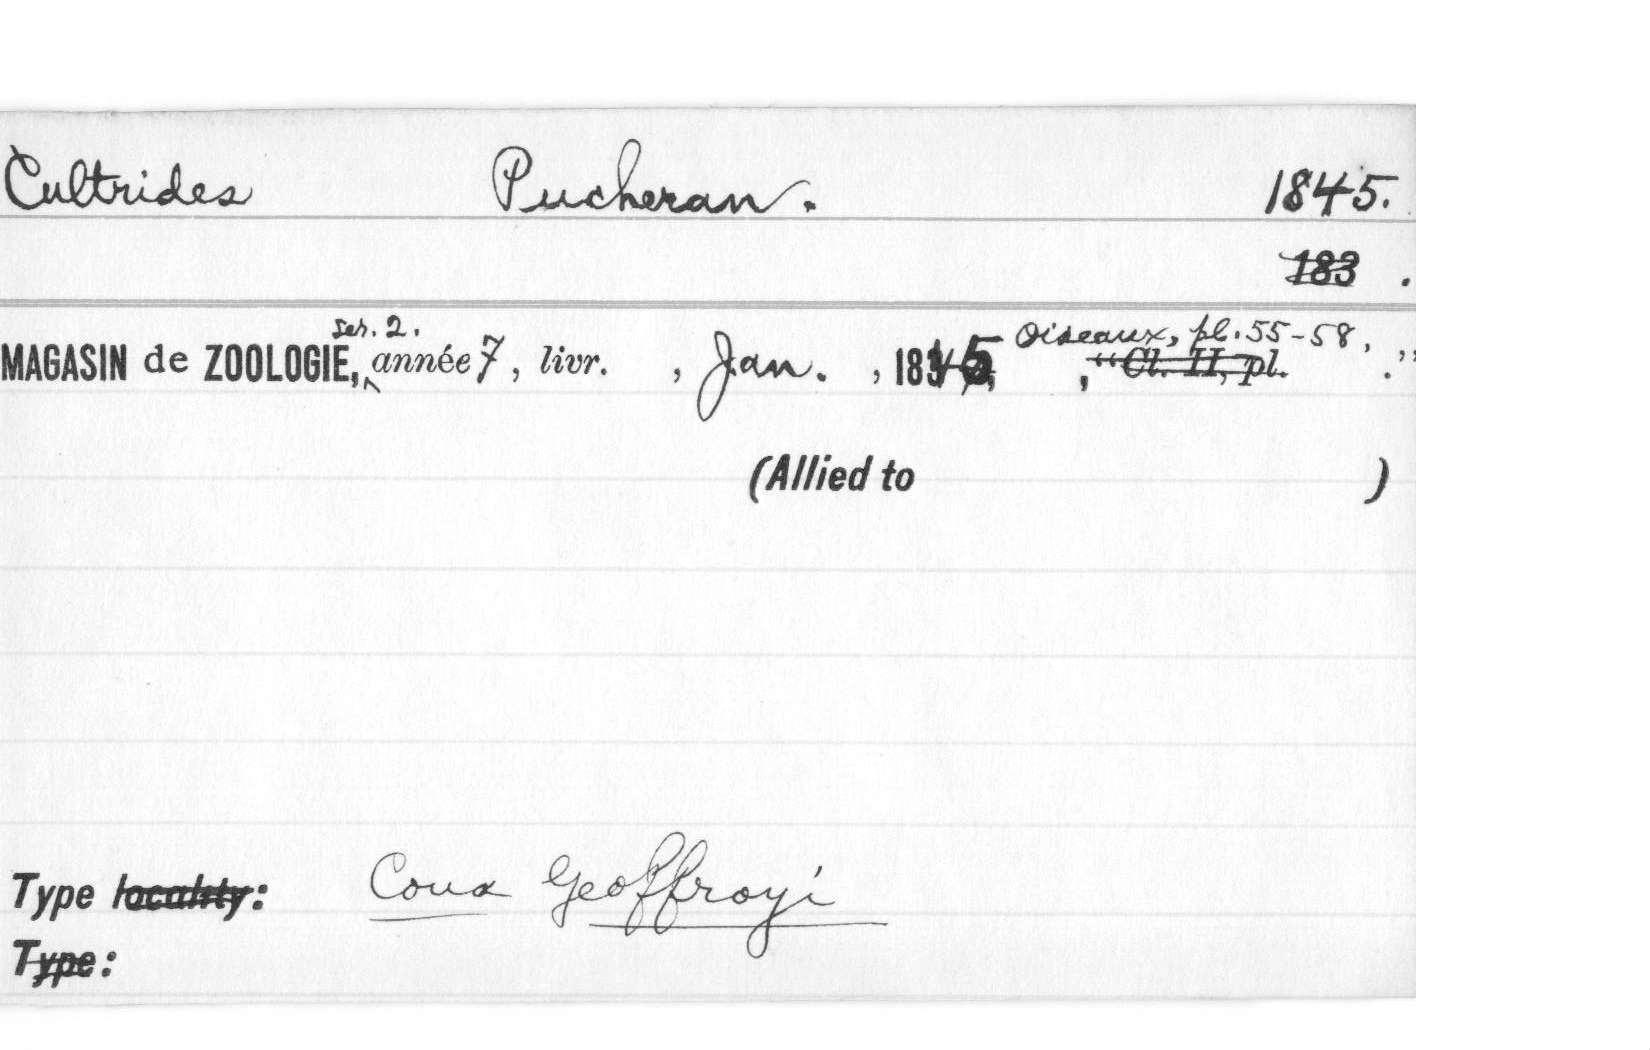 Cultrides Pucheran. 1845.
183 .
ser. 2. Oiseaux, pl. 55-58,
MAGASIN de ZOOLOGIE, année 7, livr. , Jan. , 1845, , "Cl. II, pl. ."
(Allied to )
Type locality: Coua Geoffroyi
Type: